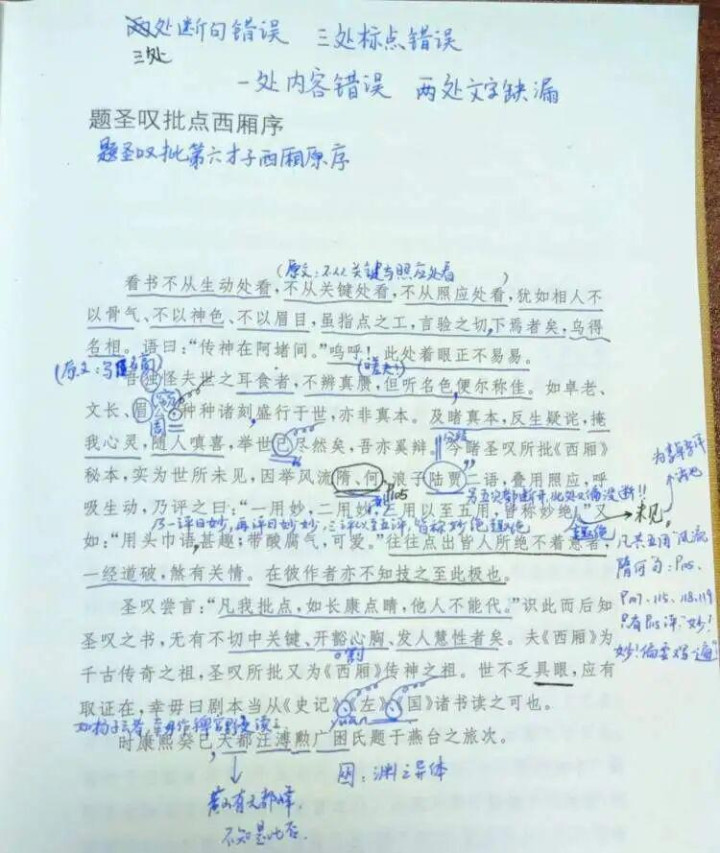 两处断句错误 三处标点错误
三处
一处内容错误 两处文字缺漏
题圣叹批点西厢序
题圣叹批第六才子西厢原序
(原文:不从关键与照应处看)
看书不从生动处看,不从关键处看,不从照应处看,犹如相人不
以骨气、不以神色、不以眉目,虽指点之工,言验之切,下焉者矣,乌得
名相。语曰:“传神在阿堵间。”呜呼!此处着眼正不易易。
吾独怪夫世之耳食者,不辨真赝,但听名色便尔称佳。如卓老、
文长、眉公种种诸刻盛行于世,亦非真本。及睹真本,反生疑诧,掩
我心灵,随人嗔喜,举世已尽然矣,吾亦奚辩。今睹圣叹所批《西厢》
秘本,实为世所未见,因举风流隋、何,浪子陆贾二语,叠用照应,呼
吸生动,乃评之曰:“一用妙,二用妙,三用以至五用,皆称妙绝。”又
乃一评曰妙,再评曰妙妙,三评以至五评,皆称妙绝
如:“用头巾语甚趣;带酸腐气,可爱。”往往点出皆人所绝不着意者,
一经道破,煞有关情。在彼作者亦不知技之至此极也。
圣叹尝言:“凡我批点,如长康点睛,他人不能代。”识此而后知
圣叹之书,无有不切中关键、开豁心胸、发人慧性者矣。夫《西厢》为
千古传奇之祖,圣叹所批又为《西厢》传神之祖。世不乏具眼,应有
取证在,幸毋曰剧本当从《史记》《左》《国》诸书读之可也。
时康熙癸巳天都汪溥勲广囦氏题于燕台之旅次。
囦:渊之异体
黄山有天都峰
不知是此否.